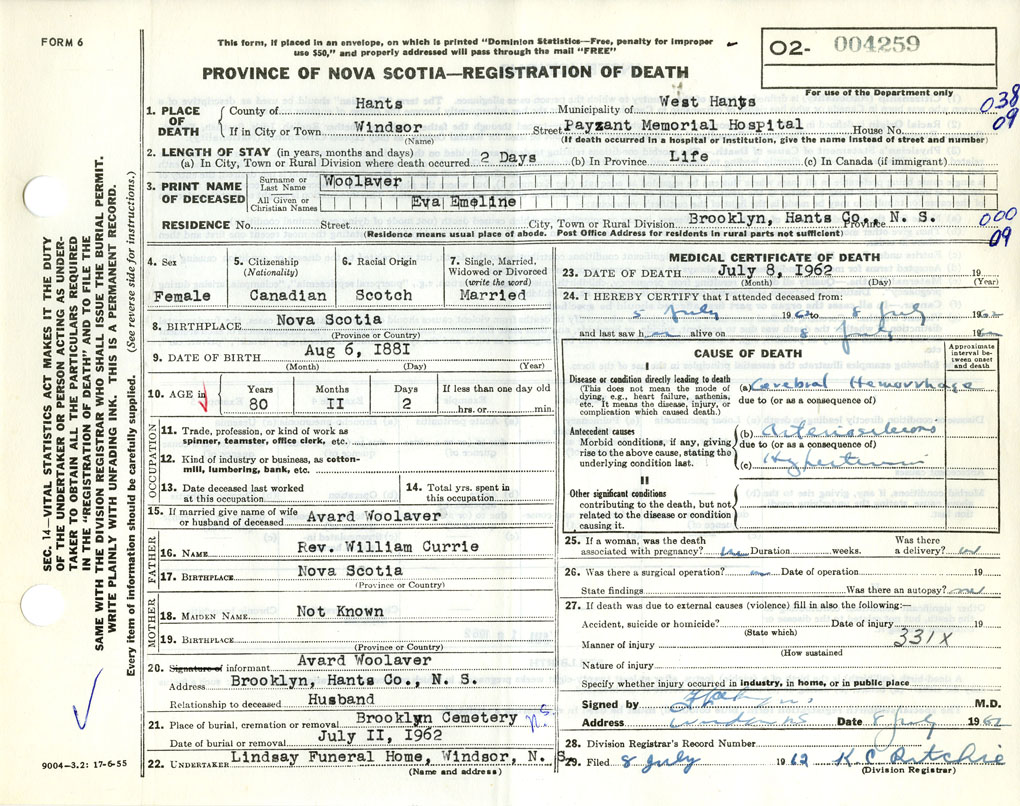 FORM 6
This form, if placed in an envelope, on which is printed "Dominion Statistics—Free, penalty for improper
use $50," and properly addressed will pass through the mail "FREE"
O2- 004259
For use of the Department only
PROVINCE OF NOVA SCOTIA—REGISTRATION OF DEATH
1. PLACE OF DEATH
County of Hants Municipality of West Hants 038
If in City or Town Windsor Street Payzant Memorial Hospital House No. 09
(Name) (If death occurred in a hospital or institution, give the name instead of street and number)
2. LENGTH OF STAY (in years, months and days)
(a) In City, Town or Rural Division where death occurred 2 Days (b) In Province Life (c) In Canada (if immigrant)
3. PRINT NAME OF DECEASED
Surname or Last Name Woolaver
All Given or Christian Names Eva Emeline
RESIDENCE No. Street City, Town or Rural Division Brooklyn, Hants Co., N. S. Province 000
(Residence means usual place of abode. Post Office Address for residents in rural parts not sufficient) 09
4. Sex Female
5. Citizenship (Nationality) Canadian
6. Racial Origin Scotch
7. Single, Married, Widowed or Divorced (write the word) Married
8. BIRTHPLACE Nova Scotia
(Province or Country)
9. DATE OF BIRTH Aug 6, I88I
(Month) (Day) (Year)
10. AGE in
Years Months Days If less than one day old
80 II 2 hrs. or min.
OCCUPATION
11. Trade, profession, or kind of work as
spinner, teamster, office clerk, etc.
12. Kind of industry or business, as cotton-
mill, lumbering, bank, etc.
13. Date deceased last worked
at this occupation
14. Total yrs. spent in
this occupation
15. If married give name of wife
or husband of deceased Avard Woolaver
FATHER
16. NAME Rev. William Currie
17. BIRTHPLACE Nova Scotia
(Province or Country)
MOTHER
18. MAIDEN NAME Not Known
19. BIRTHPLACE
(Province or Country)
20. Signature of informant Avard Woolaver
Address Brooklyn, Hants Co., N. S.
Relationship to deceased Husband
21. Place of burial, cremation or removal Brooklyn Cemetery N.S.
Date of burial or removal July II, I962
22. UNDERTAKER Lindsay Funeral Home, Windsor, N. S.
(Name and address)
MEDICAL CERTIFICATE OF DEATH
23. DATE OF DEATH July 8, I962 19
(Month) (Day) (Year)
24. I HEREBY CERTIFY that I attended deceased from:
5 July 1962 to 8 July 1962
and last saw h alive on 8 July 19
CAUSE OF DEATH
Approximate interval between onset and death
I
Disease or condition directly leading to death (a) Cerebral Hemorrhage
(This does not mean the mode of
dying, e.g., heart failure, asthenia,
etc. It means the disease, injury, or
complication which caused death.)
due to (or as a consequence of)
Antecedent causes (b) Arteriosclerosis
Morbid conditions, if any, giving
rise to the above cause, stating the
underlying condition last.
due to (or as a consequence of)
(c) Hypertension
II
Other significant conditions
contributing to the death, but not
related to the disease or condition
causing it.
25. If a woman, was the death
associated with pregnancy? Duration weeks. Was there
a delivery?
26. Was there a surgical operation? Date of operation 19
State findings Was there an autopsy?
27. If death was due to external causes (violence) fill in also the following:—
Accident, suicide or homicide? Date of injury 19
(State which)
Manner of injury 331X
(How sustained)
Nature of injury
Specify whether injury occurred in industry, in home, or in public place
Signed by M.D.
Address Windsor NS Date 8 July 1962
28. Division Registrar's Record Number
29. Filed 8 July 1962 K.C. Ritchie
(Division Registrar)
SEC. 14—VITAL STATISTICS ACT MAKES IT THE DUTY
OF THE UNDERTAKER OR PERSON ACTING AS UNDER-
TAKER TO OBTAIN ALL THE PARTICULARS REQUIRED
IN THE "REGISTRATION OF DEATH" AND TO FILE THE
SAME WITH THE DIVISION REGISTRAR WHO SHALL ISSUE THE BURIAL PERMIT.
WRITE PLAINLY WITH UNFADING INK. THIS IS A PERMANENT RECORD.
Every item of information should be carefully supplied. (See reverse side for instructions.)
9004—3.2: 17-6-55